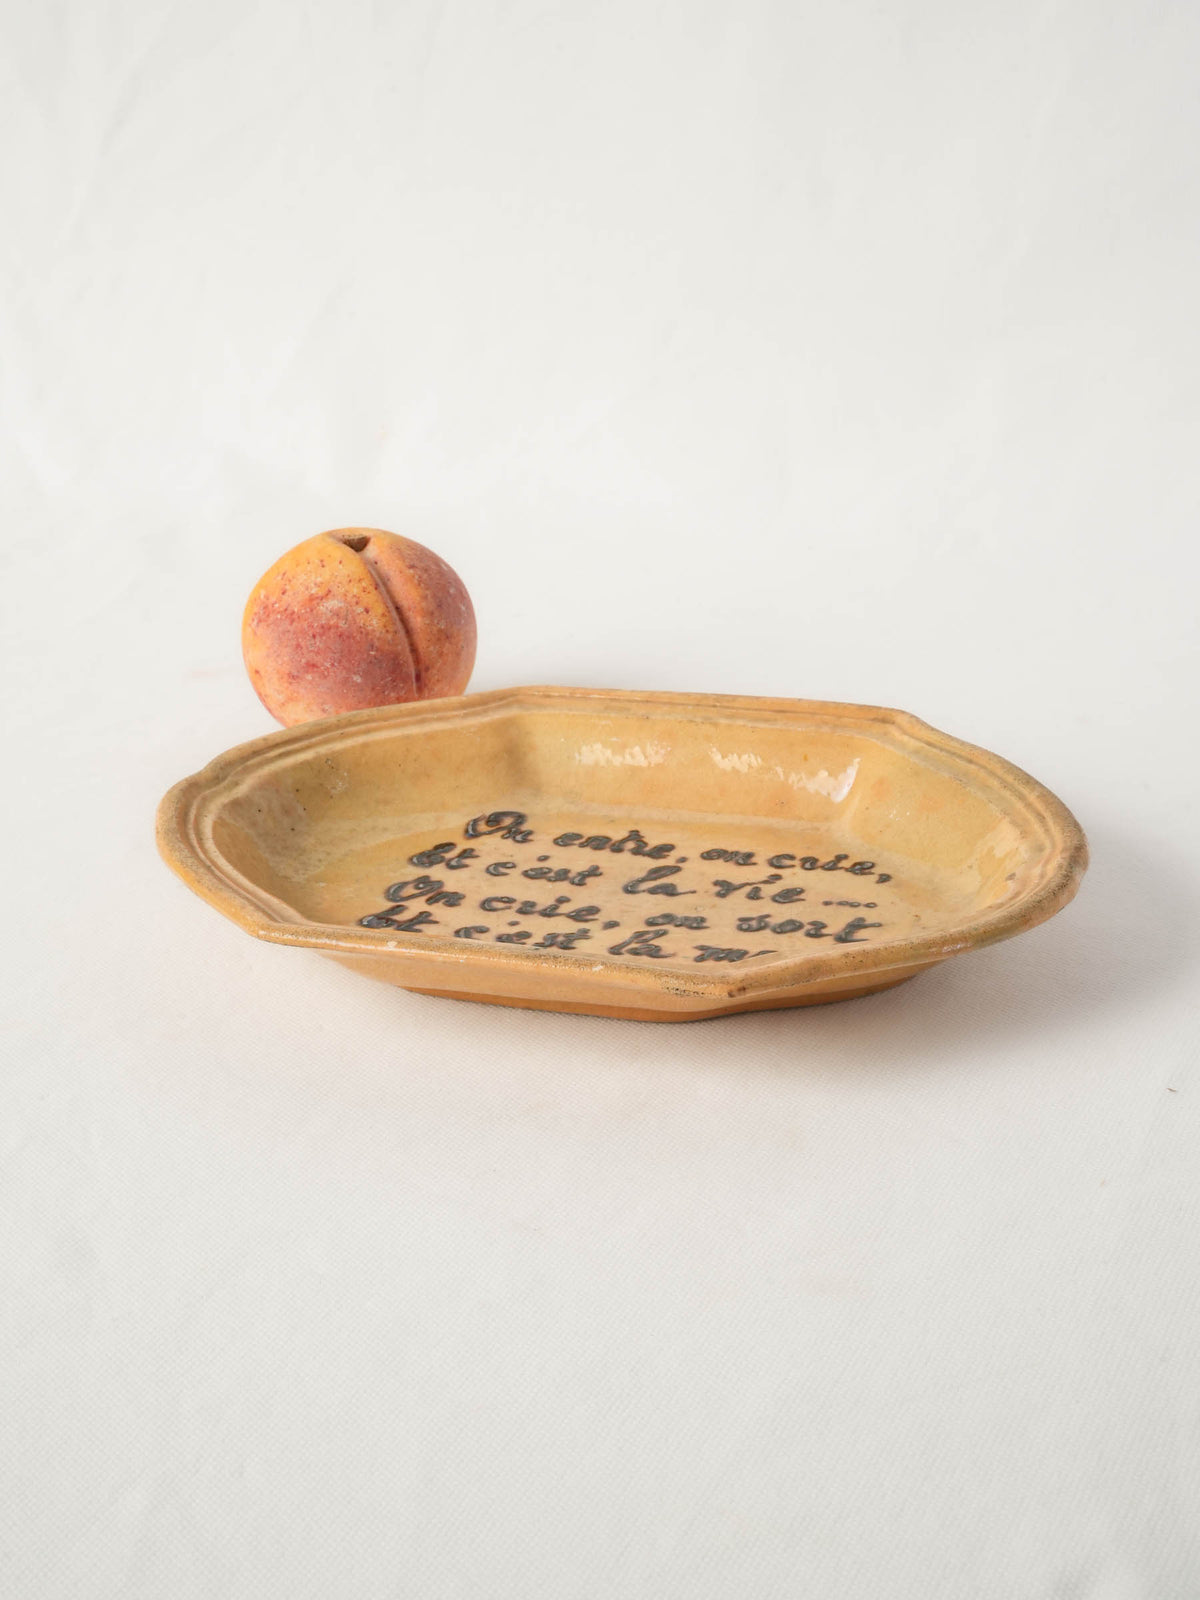 On entre, on crie,
Et c'est la vie ....
On crie, on sort
Et c'est la m